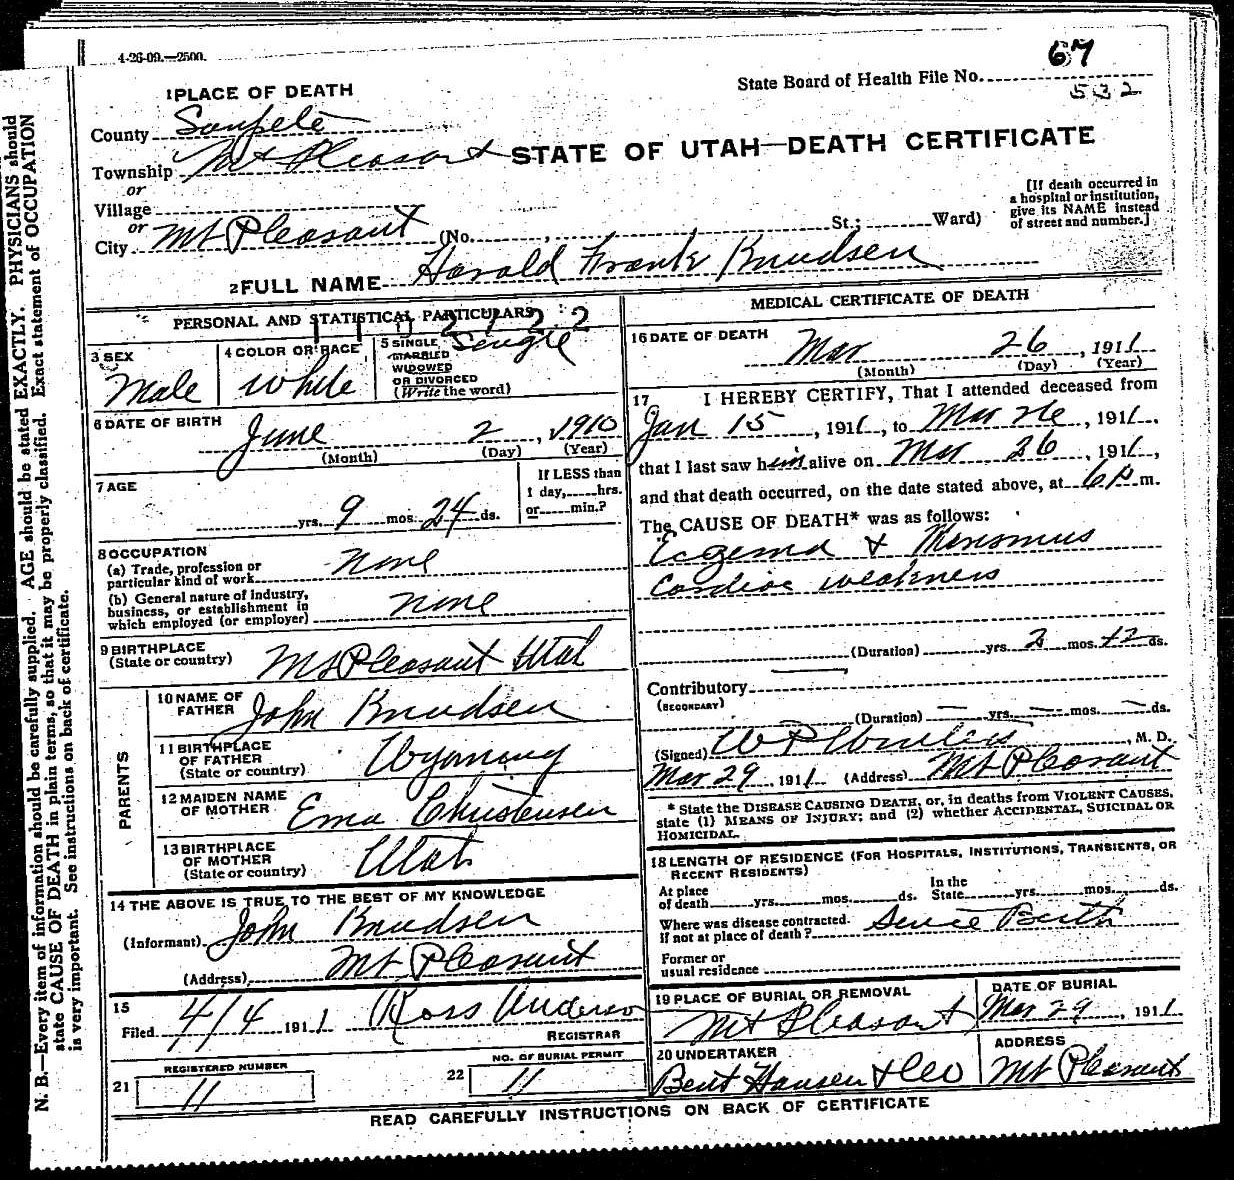 4-26-09.—2500.
State Board of Health File No. 67
532
1 PLACE OF DEATH
County Sanpete
Township Mt Pleasant
STATE OF UTAH—DEATH CERTIFICATE
or
Village
or
City Mt Pleasant (No. , St.; Ward)
[If death occurred in
a hospital or institution,
give its NAME instead
of street and number.]
2 FULL NAME Harold Frank Knudsen
PERSONAL AND STATISTICAL PARTICULARS
3 SEX
Male
4 COLOR OR RACE
White
5 SINGLE
MARRIED
WIDOWED
OR DIVORCED
(Write the word)
Single
6 DATE OF BIRTH
June 2, 1910
(Month) (Day) (Year)
7 AGE
yrs. 9 mos. 24 ds.
If LESS than
1 day, hrs.
or min.?
8 OCCUPATION
(a) Trade, profession or
particular kind of work none
(b) General nature of industry,
business, or establishment in
which employed (or employer) none
9 BIRTHPLACE
(State or country) Mt Pleasant Utah
PARENTS
10 NAME OF
FATHER John Knudsen
11 BIRTHPLACE
OF FATHER
(State or country) Wyoming
12 MAIDEN NAME
OF MOTHER Ema Christensen
13 BIRTHPLACE
OF MOTHER
(State or country) Utah
14 THE ABOVE IS TRUE TO THE BEST OF MY KNOWLEDGE
(Informant) John Knudsen
(Address) Mt Pleasant
15
Filed 4/4 1911 Ross Anderson
REGISTRAR
21 REGISTERED NUMBER
11
22 NO. OF BURIAL PERMIT
11
MEDICAL CERTIFICATE OF DEATH
16 DATE OF DEATH
Mar 26, 1911
(Month) (Day) (Year)
17 I HEREBY CERTIFY, That I attended deceased from
Jan 15, 1911, to Mar 26, 1911,
that I last saw him alive on Mar 26, 1911,
and that death occurred, on the date stated above, at 6 P m.
The CAUSE OF DEATH* was as follows:
Eczema & Marasmus
Cardiac weakness
(Duration) yrs. 2 mos. 12 ds.
Contributory
(SECONDARY)
(Duration) — yrs. — mos. — ds.
(Signed) W P , M. D.
Mar 29, 1911 (Address) Mt Pleasant
* State the DISEASE CAUSING DEATH, or, in deaths from VIOLENT CAUSES,
state (1) MEANS OF INJURY; and (2) whether ACCIDENTAL, SUICIDAL OR
HOMICIDAL.
18 LENGTH OF RESIDENCE (FOR HOSPITALS, INSTITUTIONS, TRANSIENTS, OR
RECENT RESIDENTS)
At place
of death yrs. mos. ds.
In the
State yrs. mos. ds.
Where was disease contracted.
if not at place of death? Since Birth
Former or
usual residence
19 PLACE OF BURIAL OR REMOVAL
Mt Pleasant
DATE OF BURIAL
Mar 29, 1911
20 UNDERTAKER
Bent Hansen & Co
ADDRESS
Mt Pleasant
READ CAREFULLY INSTRUCTIONS ON BACK OF CERTIFICATE
N. B.—Every item of information should be carefully supplied. AGE should be stated EXACTLY. PHYSICIANS should
state CAUSE OF DEATH in plain terms, so that it may be properly classified. Exact statement of OCCUPATION
is very important. See instructions on back of certificate.